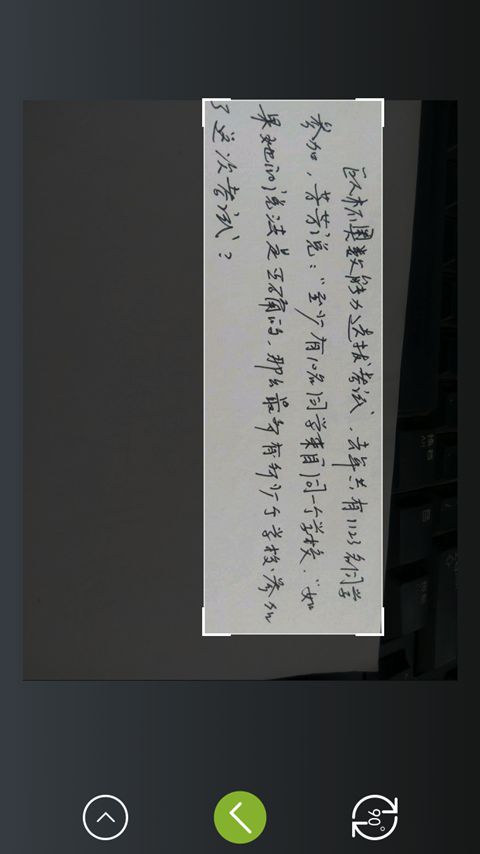 区杯奥数能力选拔考试，去年共有1123名同学
参加，芳芳说：“至少有10名同学来自同一个学校．”如
果她的说法是正确的，那么最多有多少个学校参加
了这次考试？
90°